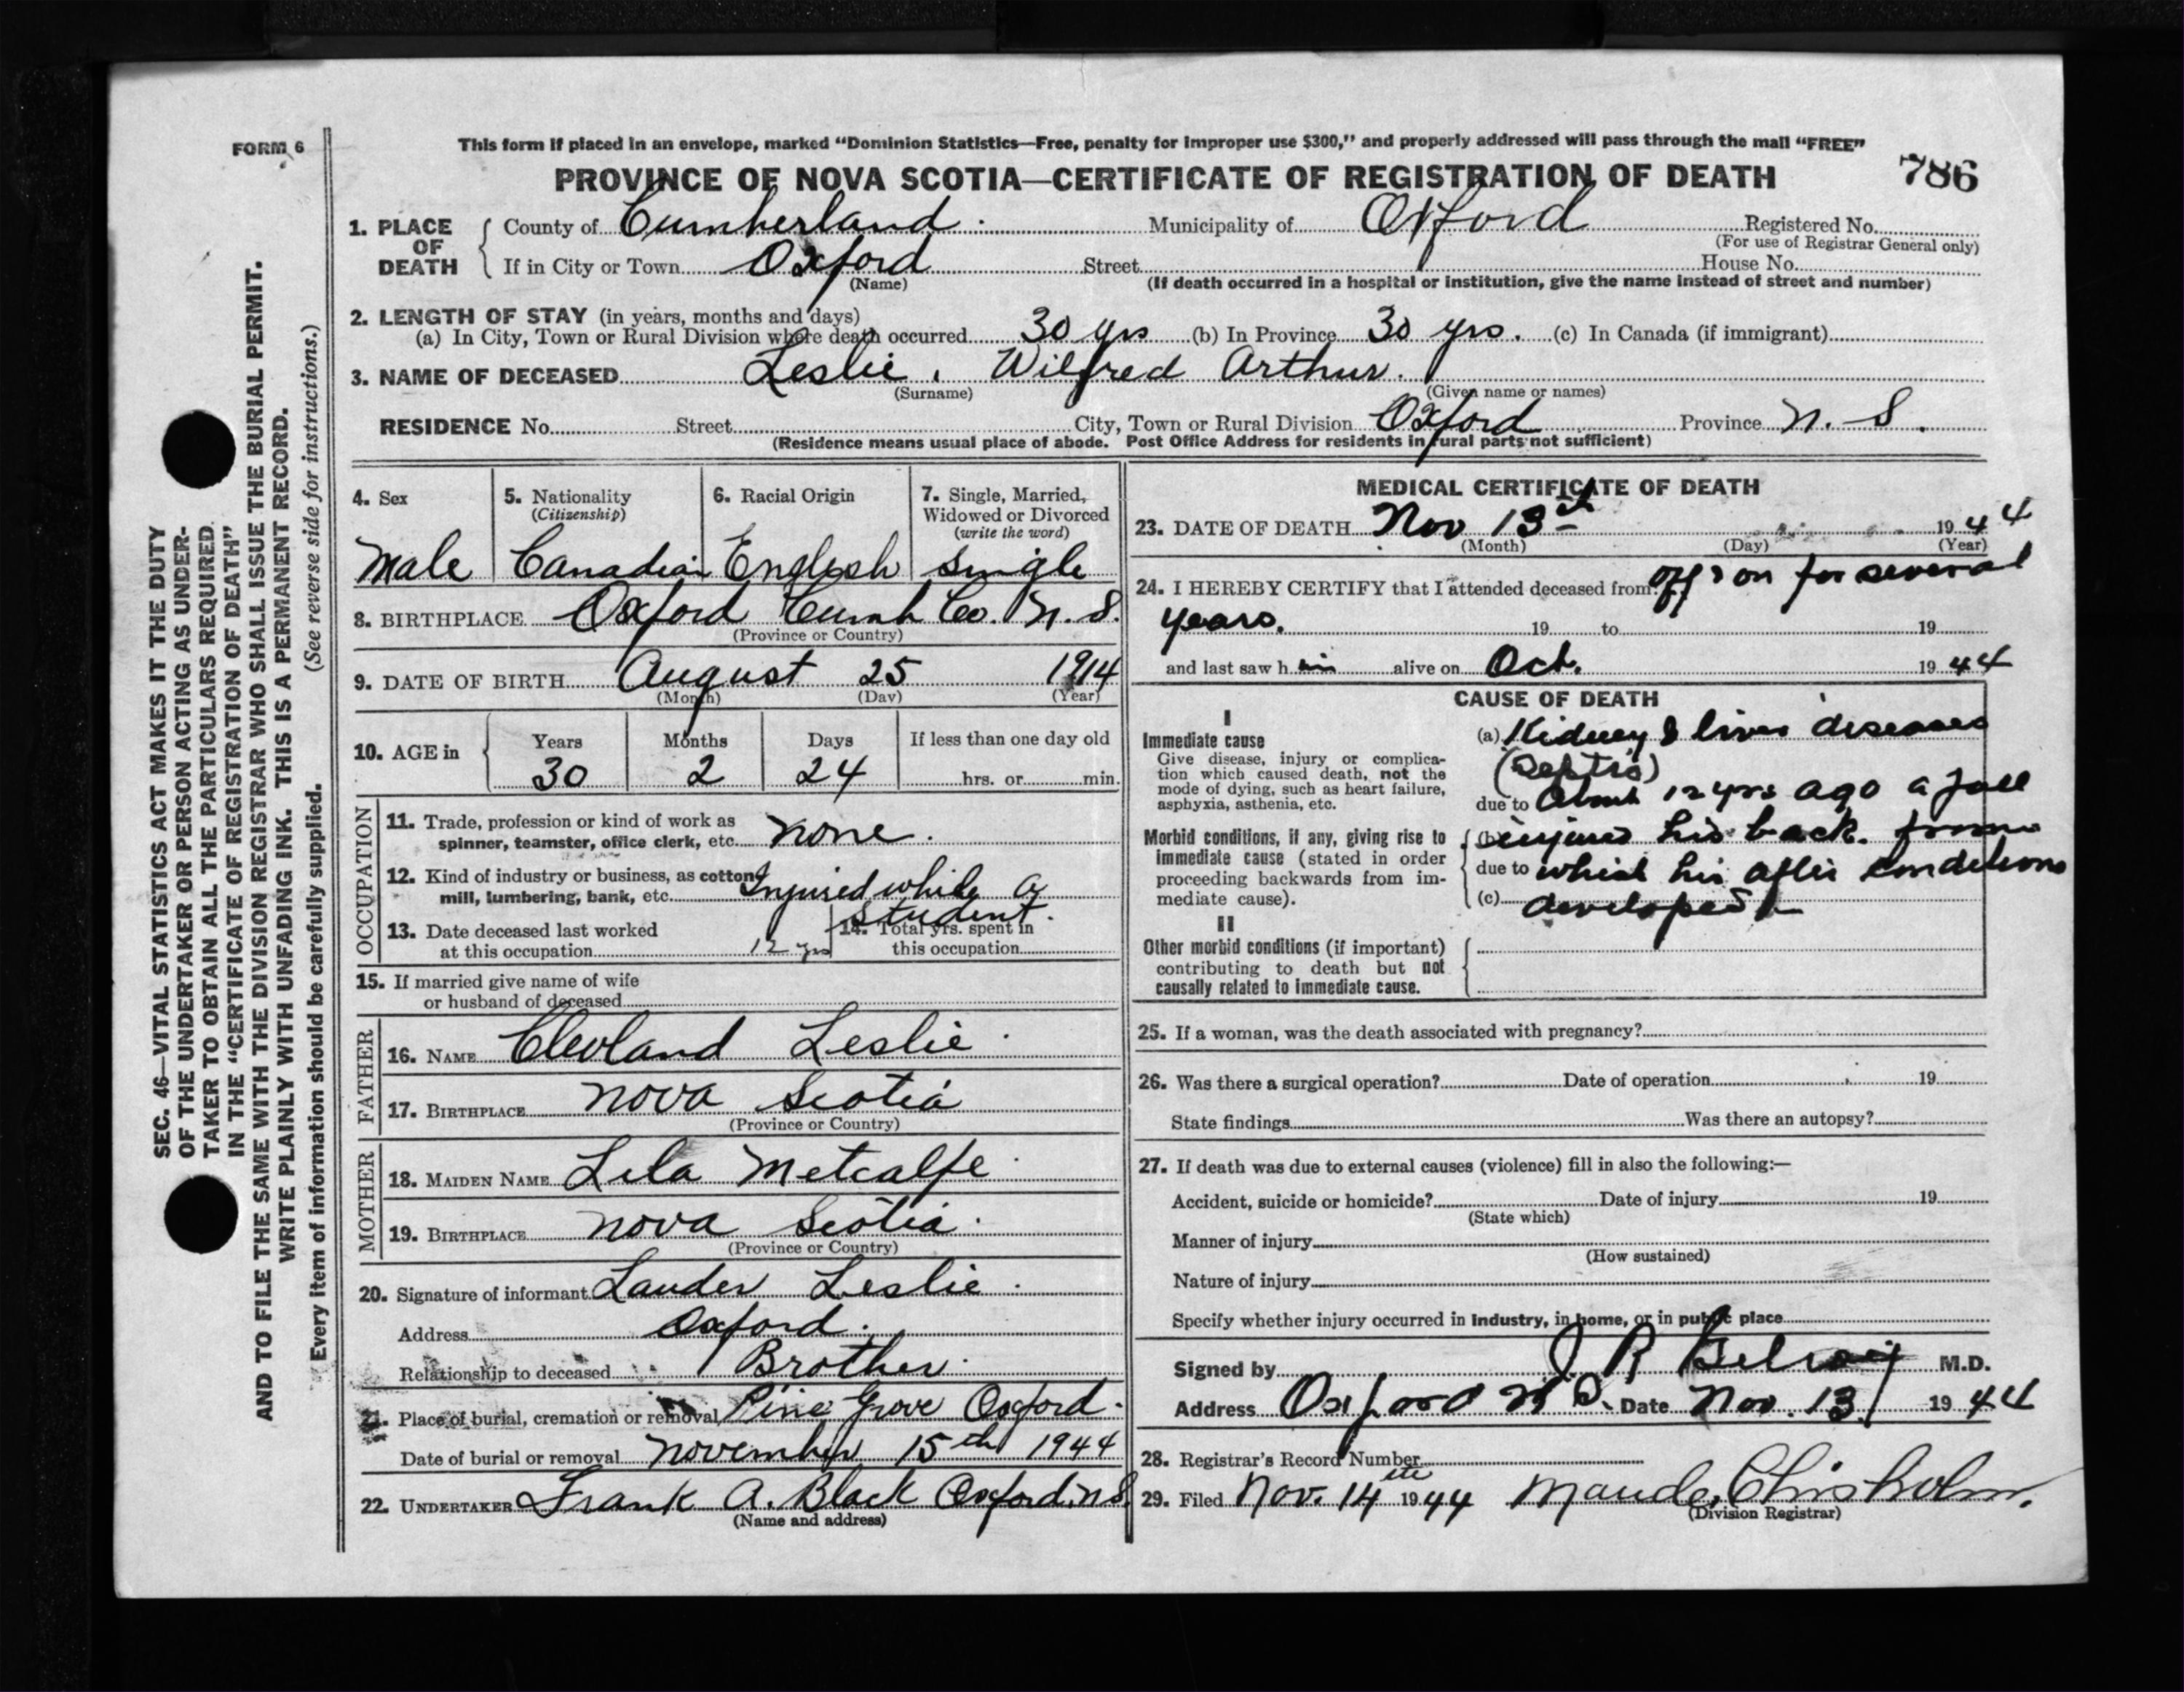 FORM 6
This form if placed in an envelope, marked “Dominion Statistics—Free, penalty for improper use $300,” and properly addressed will pass through the mail “FREE”
PROVINCE OF NOVA SCOTIA—CERTIFICATE OF REGISTRATION OF DEATH
786
1. PLACE OF DEATH { County of Cumberland Municipality of Oxford Registered No.
(For use of Registrar General only)
If in City or Town Oxford Street House No.
(Name) (If death occurred in a hospital or institution, give the name instead of street and number)
2. LENGTH OF STAY (in years, months and days)
(a) In City, Town or Rural Division where death occurred 30 yrs (b) In Province 30 yrs. (c) In Canada (if immigrant)
3. NAME OF DECEASED Leslie, Wilfred Arthur.
(Surname) (Given name or names)
RESIDENCE No. Street City, Town or Rural Division Oxford Province N. S.
(Residence means usual place of abode. Post Office Address for residents in rural parts not sufficient)
4. Sex
Male
5. Nationality
(Citizenship)
Canadian
6. Racial Origin
English
7. Single, Married,
Widowed or Divorced
(write the word)
Single
8. BIRTHPLACE Oxford Cumb Co. N. S.
(Province or Country)
9. DATE OF BIRTH August 25 1914
(Month) (Day) (Year)
10. AGE in { Years Months Days If less than one day old
30 2 24 hrs. or min.
OCCUPATION
11. Trade, profession or kind of work as
spinner, teamster, office clerk, etc. None.
12. Kind of industry or business, as cotton
mill, lumbering, bank, etc. Injured while a
student.
13. Date deceased last worked
at this occupation 12 yrs
14. Total yrs. spent in
this occupation
15. If married give name of wife
or husband of deceased
FATHER
16. NAME Clevland Leslie
17. BIRTHPLACE Nova Scotia
(Province or Country)
MOTHER
18. MAIDEN NAME Lila Metcalfe
19. BIRTHPLACE Nova Scotia
(Province or Country)
20. Signature of informant Lauder Leslie
Address Oxford.
Relationship to deceased Brother
21. Place of burial, cremation or removal Pine Grove Oxford.
Date of burial or removal November 15th 1944
22. UNDERTAKER Frank A. Black Oxford N.S.
(Name and address)
MEDICAL CERTIFICATE OF DEATH
23. DATE OF DEATH Nov 13th 1944
(Month) (Day) (Year)
24. I HEREBY CERTIFY that I attended deceased from off & on for several
years. 19 to 19
and last saw h im alive on Oct. 1944
CAUSE OF DEATH
I
Immediate cause
Give disease, injury or complica-
tion which caused death, not the
mode of dying, such as heart failure,
asphyxia, asthenia, etc.
Morbid conditions, if any, giving rise to
immediate cause (stated in order
proceeding backwards from im-
mediate cause).
(a) Kidney & liver diseases
(Septic)
due to About 12 yrs ago a fall
(b) injured his back. from
due to which his after conditions
(c) developed
II
Other morbid conditions (if important)
contributing to death but not
causally related to immediate cause.
25. If a woman, was the death associated with pregnancy?
26. Was there a surgical operation? Date of operation 19
State findings Was there an autopsy?
27. If death was due to external causes (violence) fill in also the following:—
Accident, suicide or homicide? Date of injury 19
(State which)
Manner of injury
(How sustained)
Nature of injury
Specify whether injury occurred in industry, in home, or in public place
Signed by J R Gilroy M.D.
Address Oxford N S. Date Nov. 13 1944
28. Registrar's Record Number
29. Filed Nov. 14th 1944 Maude Chisholm.
(Division Registrar)
SEC. 46—VITAL STATISTICS ACT MAKES IT THE DUTY
OF THE UNDERTAKER OR PERSON ACTING AS UNDER-
TAKER TO OBTAIN ALL THE PARTICULARS REQUIRED
IN THE “CERTIFICATE OF REGISTRATION OF DEATH”
AND TO FILE THE SAME WITH THE DIVISION REGISTRAR WHO SHALL ISSUE THE BURIAL PERMIT.
WRITE PLAINLY WITH UNFADING INK. THIS IS A PERMANENT RECORD.
Every item of information should be carefully supplied. (See reverse side for instructions.)